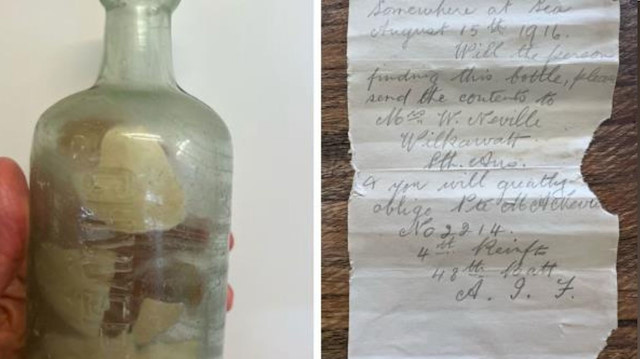 Somewhere at Sea
August 15th 1916.
Will the person
finding this bottle, please
send the contents to
Mrs W. Neville
Wilkawatt
Sth. Aus.
& you will greatly
oblige Pte M A Neville
No 2814.
4th Reinft
48th Batt
A. I. F.